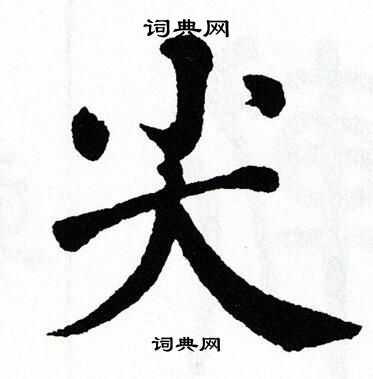 词典网
尖
词典网